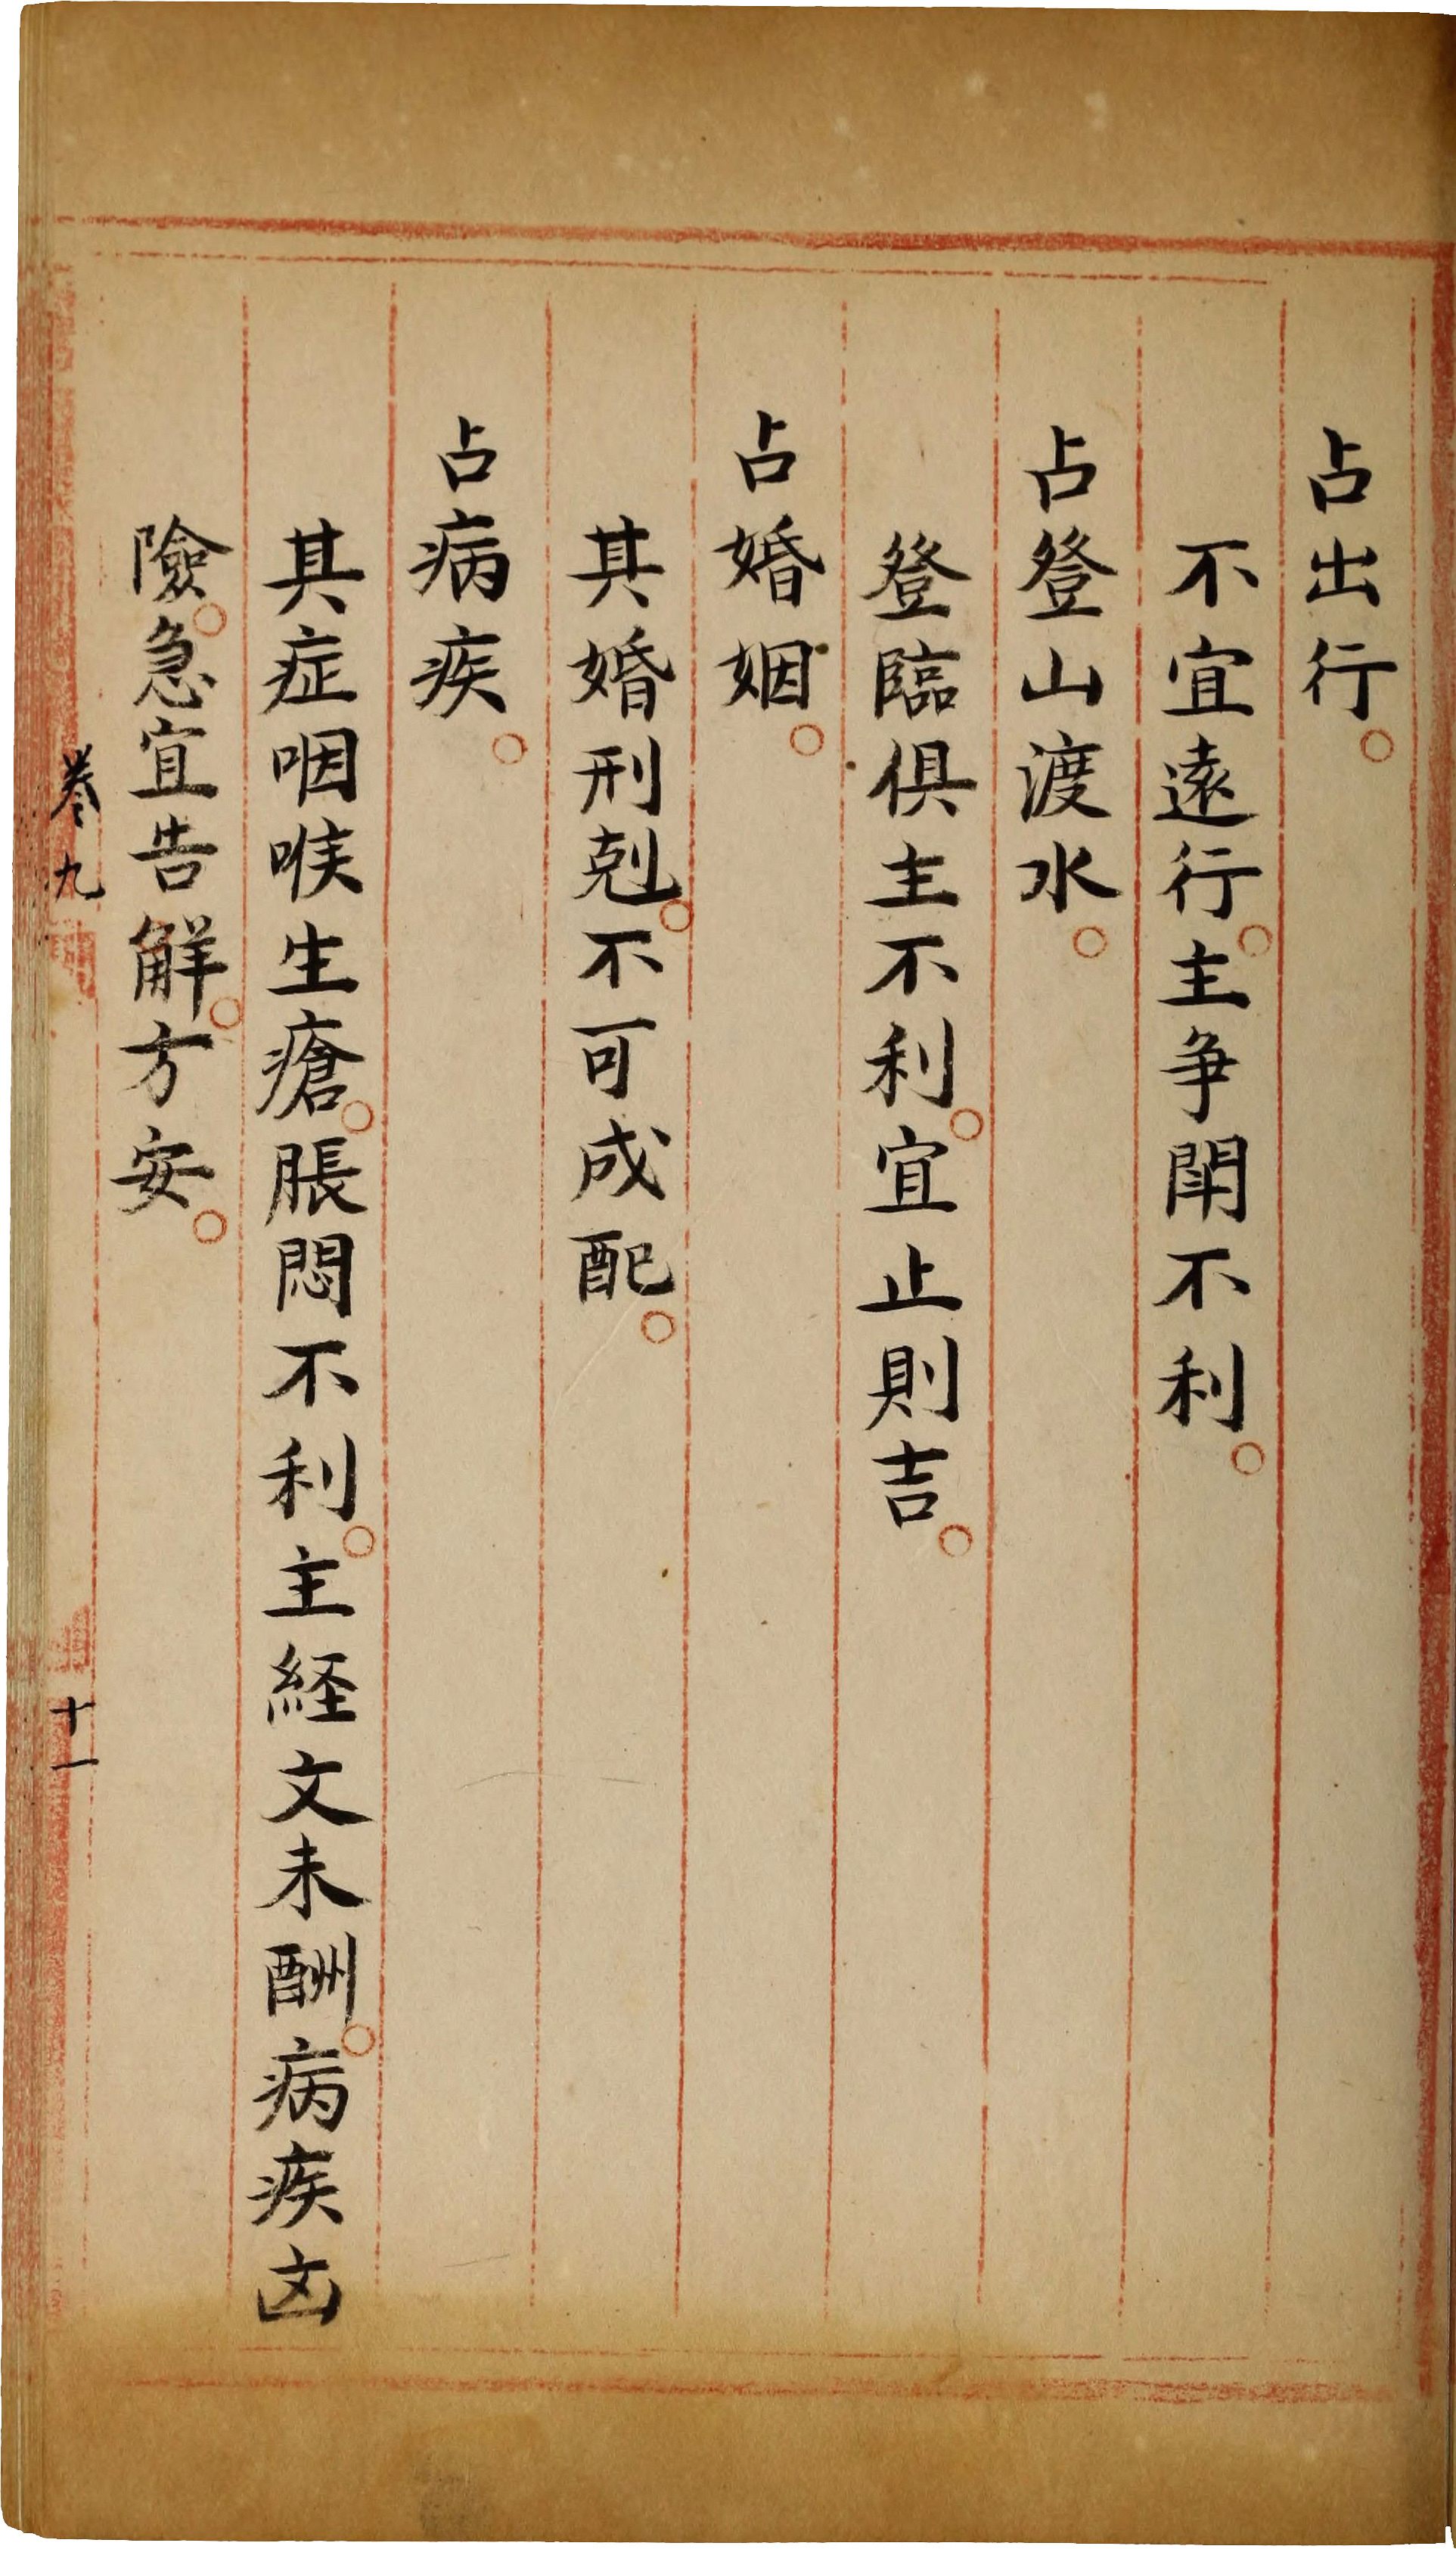 占出行。
不宜遠行。主争鬧不利。
占登山渡水。
登臨俱主不利。宜止則吉。
占婚姻。
其婚刑剋。不可成配。
占病疾。
其症咽喉生瘡。脹悶不利。主経文未酬。病疾凶
險。急宜告解。方安。
卷九
十一